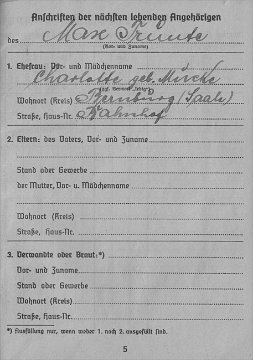 Anschriften der nächsten lebenden Angehörigen
des Max
(Vor- und Zuname)
1. Ehefrau: Vor- und Mädchenname
Charlotte geb.
Wohnort (Kreis) Bernburg (Saale)
Straße, Haus-Nr. Bahnhof
2. Eltern: des Vaters, Vor- und Zuname
Stand oder Gewerbe
der Mutter, Vor- u. Mädchenname
Wohnort (Kreis)
Straße, Haus-Nr.
3. Verwandte oder Braut:*)
Vor- und Zuname
Stand oder Gewerbe
Wohnort (Kreis)
Straße, Haus-Nr.
*) Ausfüllung nur, wenn weder 1. noch 2. ausgefüllt sind.
5